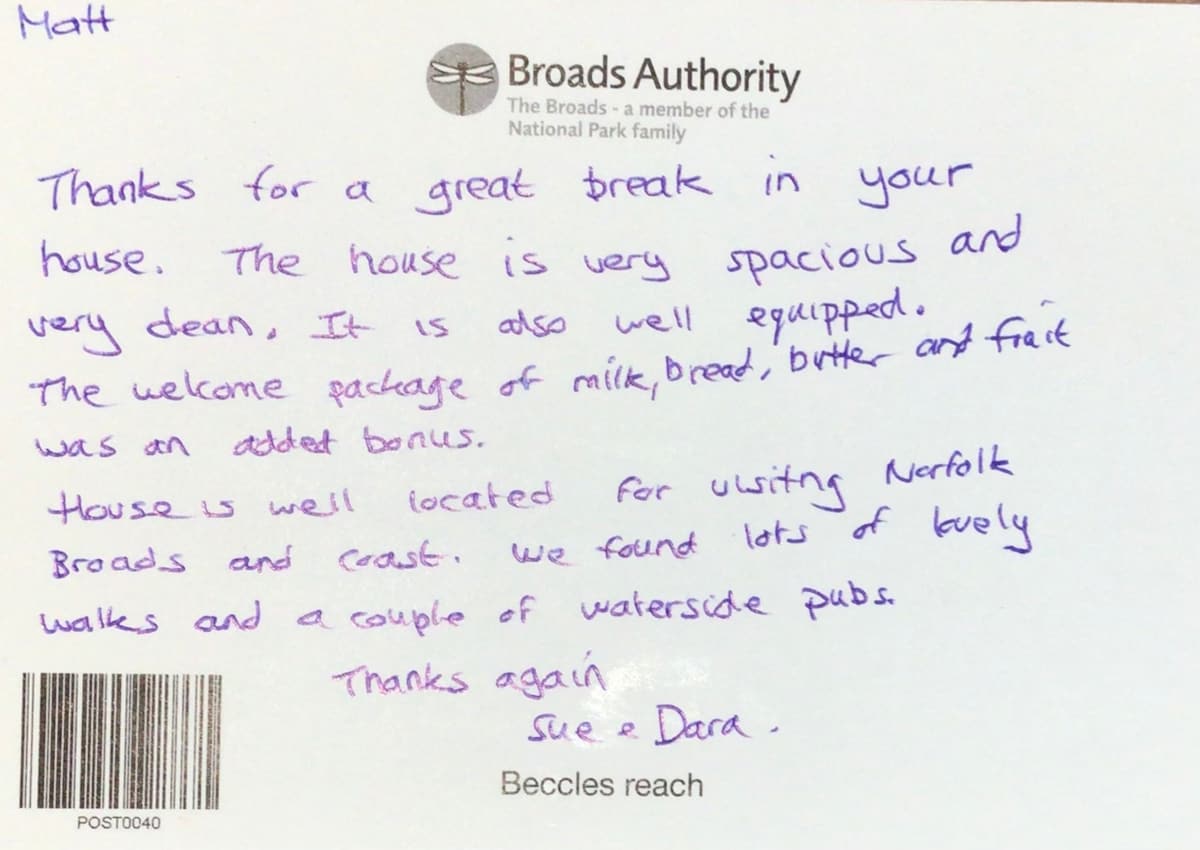 Matt
Broads Authority
The Broads - a member of the
National Park family
Thanks for a great break in your
house. The house is very spacious and
very clean. It is also well equipped.
The welcome package of milk, bread, butter and fruit
was an added bonus.
House is well located for visitng Norfolk
Broads and Coast. We found lots of lovely
walks and a couple of waterside pubs.
Thanks again
Sue e Dara.
Beccles reach
POST0040